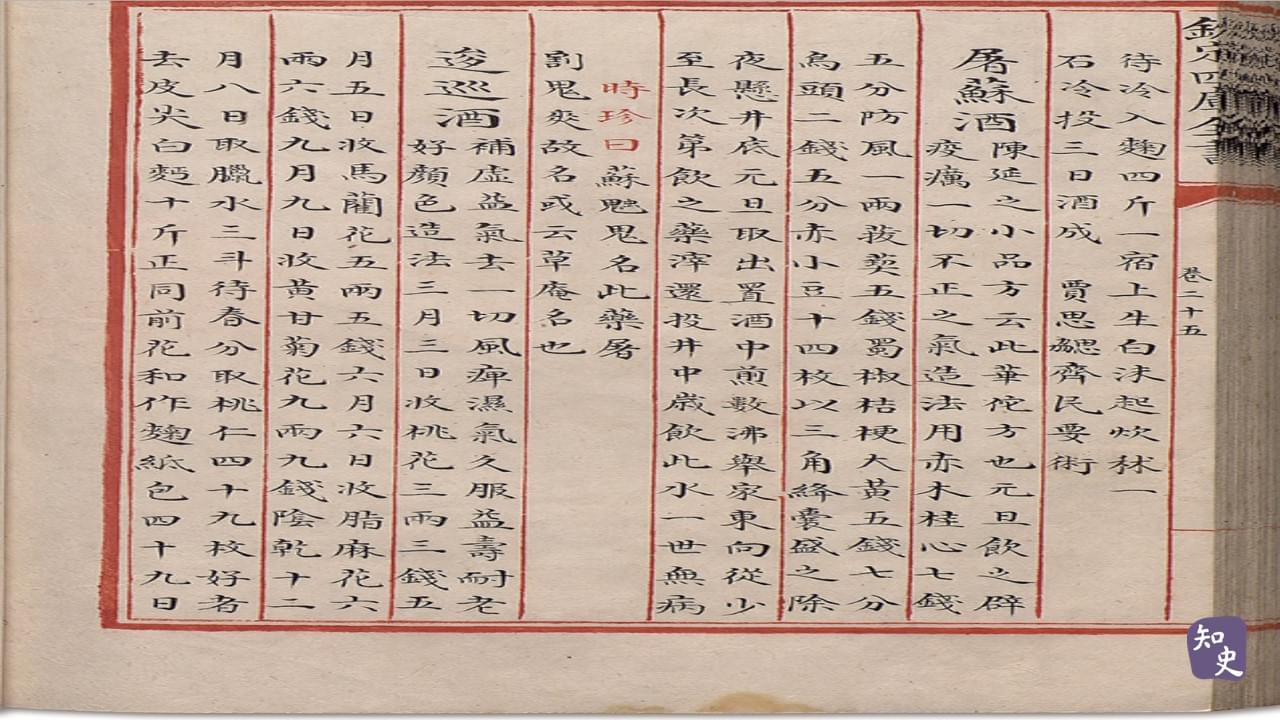 欽定四庫全書
卷二十五
待冷入麴四斤一宿上生白沫起炊秫一
石冷投三日酒成 賈思勰齊民要術
屠蘇酒
陳延之小品方云此華佗方也元旦飲之辟
疫癘一切不正之氣造法用赤木桂心七錢
五分防風一兩菝葜五錢蜀椒桔梗大黃五錢七分
烏頭二錢五分赤小豆十四枚以三角絳囊盛之除
夜懸井底元旦取出置酒中煎數沸舉家東向從少
至長次第飲之藥滓還投井中歲飲此水一世無病
時珍曰蘇魋鬼名此藥屠
割鬼爽故名或云草庵名也
逡巡酒
補虛益氣去一切風痺濕氣久服益壽耐老
好顏色造法三月三日收桃花三兩三錢五
月五日收馬藺花五兩五錢六月六日收脂麻花六
兩六錢九月九日收黃甘菊花九兩九錢陰乾十二
月八日取臘水三斗待春分取桃仁四十九枚好者
去皮尖白麪十斤正同前花和作麴紙包四十九日
知史